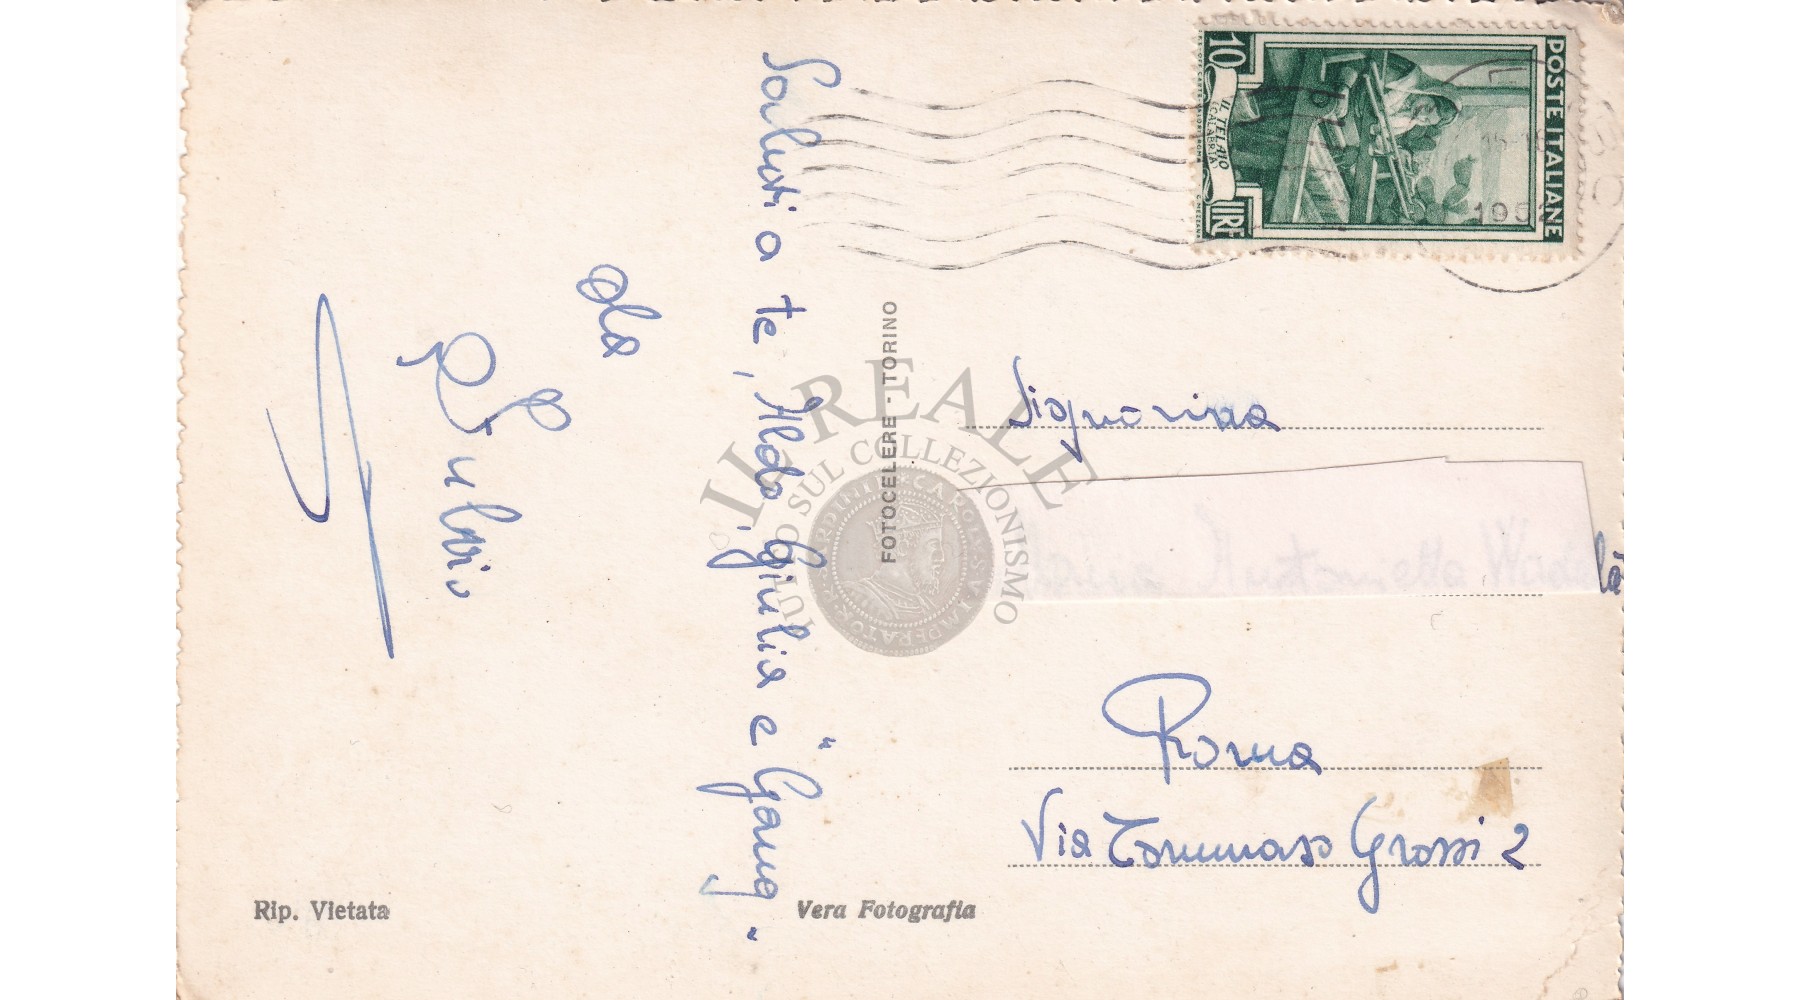 Saluti a te, Aldo, Giulia e "Gang"
da
Fulvio
FOTOCELERE - TORINO
Signorina
Roma
Via Tommaso Grossi 2
Rip. Vietata
Vera Fotografia
POSTE ITALIANE
10 LIRE
IL TELAIO
(CALABRIA)
1952
IL REALE
TUTTO SUL COLLEZIONISMO